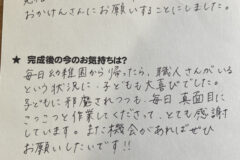 おかけんさんにお願いすることにしました。
★ 完成後の今のお気持ちは?
毎日幼稚園から帰ったら、職人さんがいる
という状況に、子どもも大喜びでした。
子どもに邪魔されつつも、毎日真面目に
こつこつと作業してくださって、とても感謝
しています。また機会があればぜひ
お願いしたいです!!